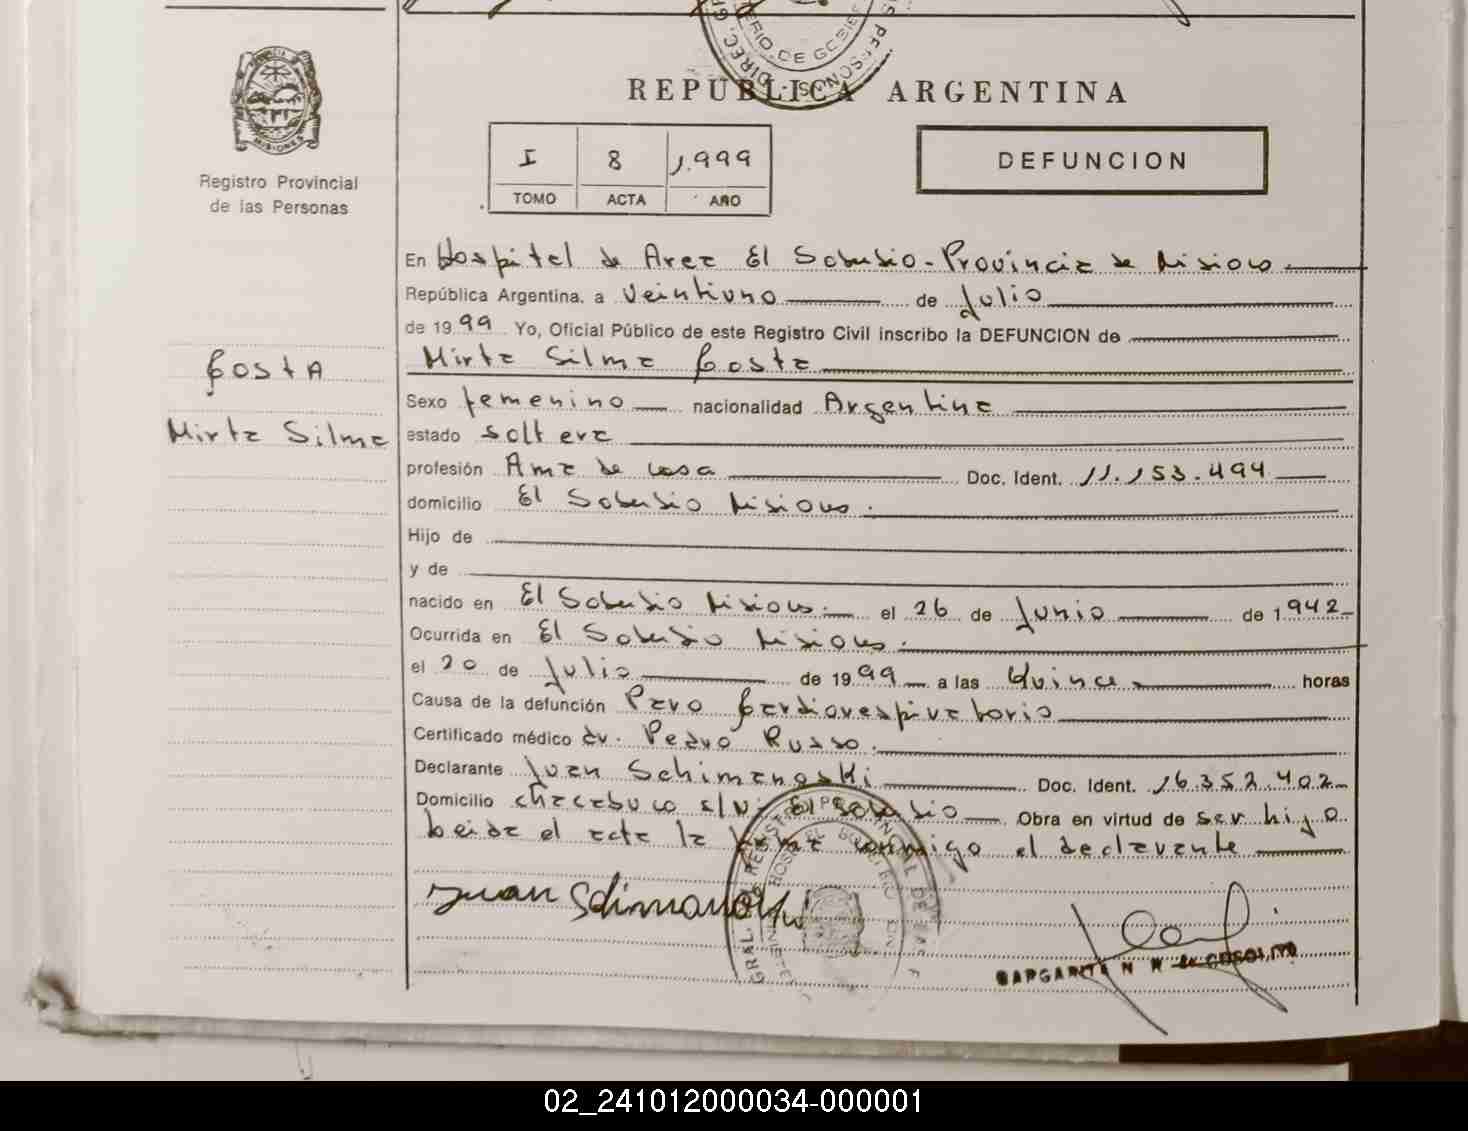 REPUBLICA ARGENTINA
MISIONES
Registro Provincial
de las Personas
I 8 1.999
TOMO ACTA AÑO
DEFUNCION
En Hospital de Area El Soberbio - Provincia de Misiones
República Argentina, a Veintiuno de Julio
de 1999 Yo, Oficial Público de este Registro Civil inscribo la DEFUNCION de
Mirta Silma Costa
COSTA
Mirta Silma
Sexo femenino nacionalidad Argentina
estado soltera
profesión Ama de casa Doc. Ident. 11.153.494
domicilio El Soberbio Misiones.
Hijo de
y de
nacido en El Soberbio Misiones. el 26 de Junio de 1942
Ocurrida en El Soberbio Misiones.
el 20 de Julio de 1999 a las Quince horas
Causa de la defunción Paro Cardiorespiratorio
Certificado médico dr. Pedro Russo.
Declarante Juan Schimanoski Doc. Ident. 16.352.402
Domicilio Chacabuco s/Nº El Soberbio Obra en virtud de ser hijo
leida el acta la firma conmigo el declarante
Juan Schimanoski
MARGARITA N
02_241012000034-000001